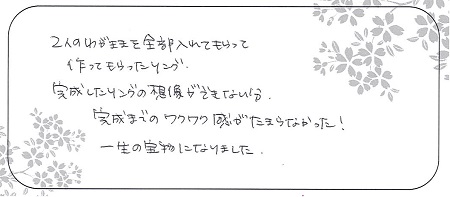 2人のわがままを全部入れてもらって
作ってもらったリング.
完成したリングの想像ができない分.
完成までのワクワク感がたまらなかった!
一生の宝物になりました.